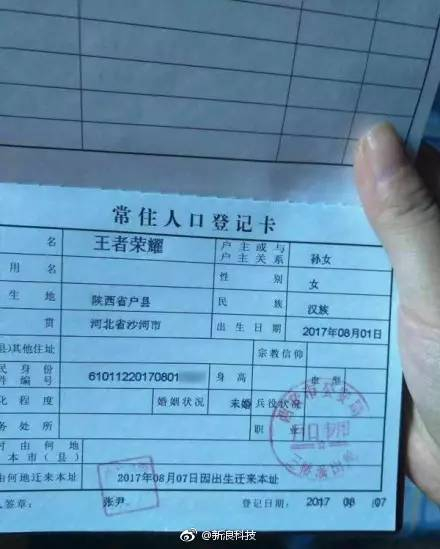 常住人口登记卡
名 王者荣耀 户主或与户主关系 孙女
用名 性别 女
生地 陕西省户县 民族 汉族
贯 河北省沙河市 出生日期 2017年08月01日
县)其他住址 宗教信仰
民身份件编号 61011220170801 身高 血型
化程度 婚姻状况 未婚 兵役状况
务处所 职业
何由何地本市(县)
何地迁来本址 2017年08月07日因出生迁来本址
人签章: 张尹 登记日期: 2017 08 07
新浪科技